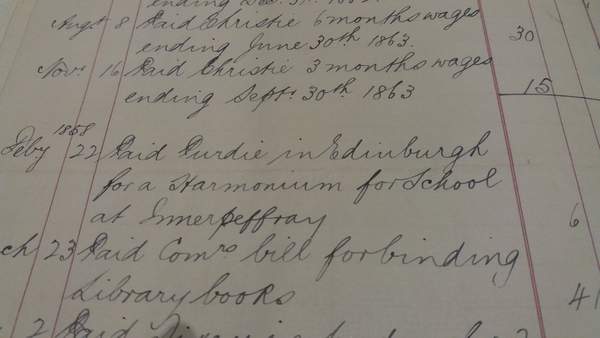 ending Dec. 31.
Augt 8 Paid Christie 6 months wages
ending June 30th 1863. 30
Novr 16 Paid Christie 3 months wages
ending Septr 30th 1863 15
1868
Feby 22 Paid Purdie in Edinburgh
for a Harmonium for School
at Innerpeffray 6
ch 23 Paid Comrs bill for binding
Library books 41
2 Paid